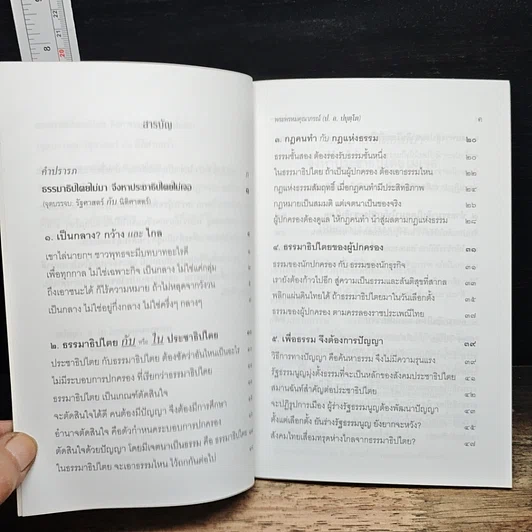 สารบัญ
คำปรารภ ก
ธรรมาธิปไตยไม่มา จึงหาประชาธิปไตยไม่เจอ ๑
(จุดบรรจบ: รัฐศาสตร์ กับ นิติศาสตร์)
๑. เป็นกลาง? กว้าง และ ไกล
เขาไล่นายกฯ ชาวพุทธจะมีบทบาทอะไรดี
เพื่อทุกกาล ไม่ใช่เฉพาะกิจ เป็นกลาง ไม่ใช่แค่กลุ่ม
ถึงเอาชนะได้ ก็ไร้ความหมาย ถ้าไม่หลุดจากวังวน
เป็นกลาง ไม่ใช่อยู่กึ่งกลาง ไม่ใช่ครึ่งๆ กลางๆ
๒. ธรรมาธิปไตย กับ หรือ ใน ประชาธิปไตย
ประชาธิปไตย กับธรรมาธิปไตย ต้องชัดว่าอันไหนเป็นอะไร
ไม่มีระบอบการปกครอง ที่เรียกว่าธรรมาธิปไตย
ธรรมาธิปไตย เป็นเกณฑ์ตัดสินใจ
จะตัดสินใจได้ดี คนต้องมีปัญญา จึงต้องมีการศึกษา
อำนาจตัดสินใจ คือตัวกำหนดระบบการปกครอง
ตัดสินใจด้วยปัญญา โดยมีเจตนาเป็นธรรม คือ ธรรมาธิปไตย
ในธรรมาธิปไตย จะเอาธรรมไหน ไว้ถกกันต่อไป
พระพรหมคุณาภรณ์ (ป. อ. ปยุตฺโต)
๓. กฎคนทำ กับ กฎแห่งธรรม ๒๐
ธรรมชั้นสอง ต้องรองรับธรรมชั้นหนึ่ง ๒๐
ในธรรมาธิปไตย ถ้าเป็นผู้ปกครอง ต้องเอาธรรมไหน
กฎแห่งธรรมสัมฤทธิ์ เมื่อกฎคนทำมีประสิทธิภาพ
กฎหมายเป็นสมมติ แต่เจตนาเป็นของจริง
ผู้ปกครองต้องดูแล ให้กฎคนทำ นำสู่ผลตามกฎแห่งธรรม
๔. ธรรมาธิปไตยของผู้ปกครอง
ธรรมของนักปกครอง กับ ธรรมของนักธุรกิจ
เรายังต้องก้าวไปอีก สู่ความเป็นธรรมและสันติสุขที่สากล
พลิกแผ่นดินไทยได้ ถ้าธรรมาธิปไตยมาในวันเลือกตั้ง
ธรรมของผู้ปกครอง ตามครรลองราชประเพณีไทย
๕. เพื่อธรรม จึงต้องการปัญญา ๓๙
วิธีการทางปัญญา คือค้นหาธรรม จึงไม่มีความรุนแรง ๓๙
รัฐธรรมนูญมุ่งตั้งธรรมที่จะเป็นหลักของสังคมประชาธิปไตย
สมานฉันท์สำคัญต่อประชาธิปไตย
จะปฏิรูปการเมือง ผู้ร่างรัฐธรรมนูญต้องพัฒนาปัญญา
ตั้งแต่เลือกตั้ง ยันร่างรัฐธรรมนูญ ยังยากจะหวัง?
สังคมไทยเสื่อมทรุดห่างไกลจากธรรมาธิปไตย?